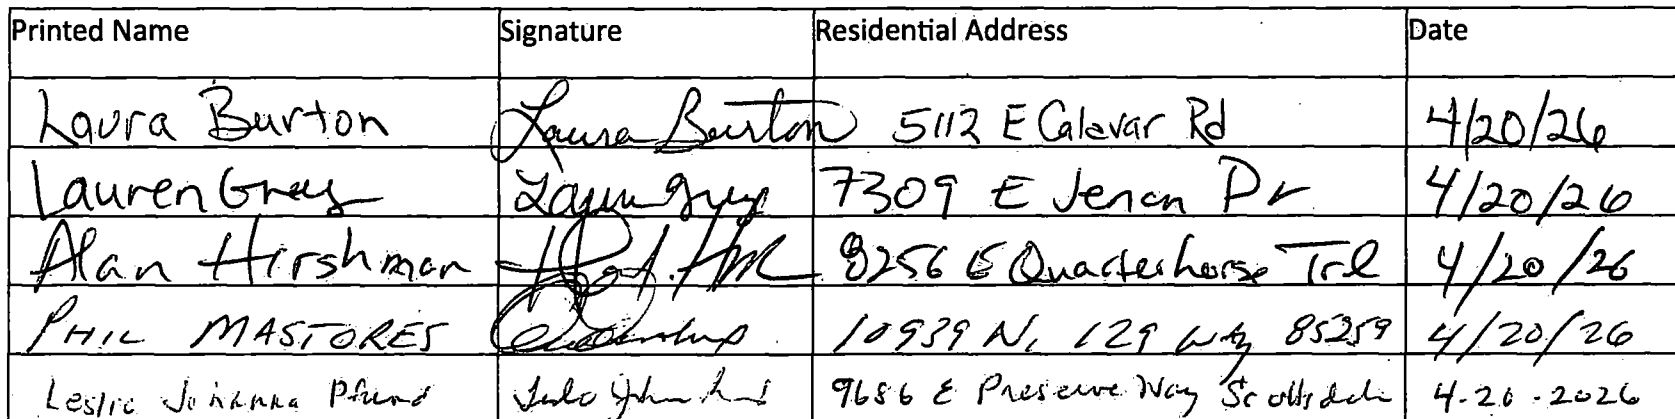 Printed Name Signature Residential Address Date
Laura Burton Laura Burton 5112 E Calavar Rd 4/20/26
Lauren Grey Lauren Grey 7309 E Jenan Dr 4/20/26
Alan Hirshman 8256 E Quarterhorse Trl 4/20/26
PHIL MASTORES 10939 N. 129 Way 85259 4/20/26
Leslie Johanna Pfund 9686 E Preserve Way Scottsdale 4.20.2026